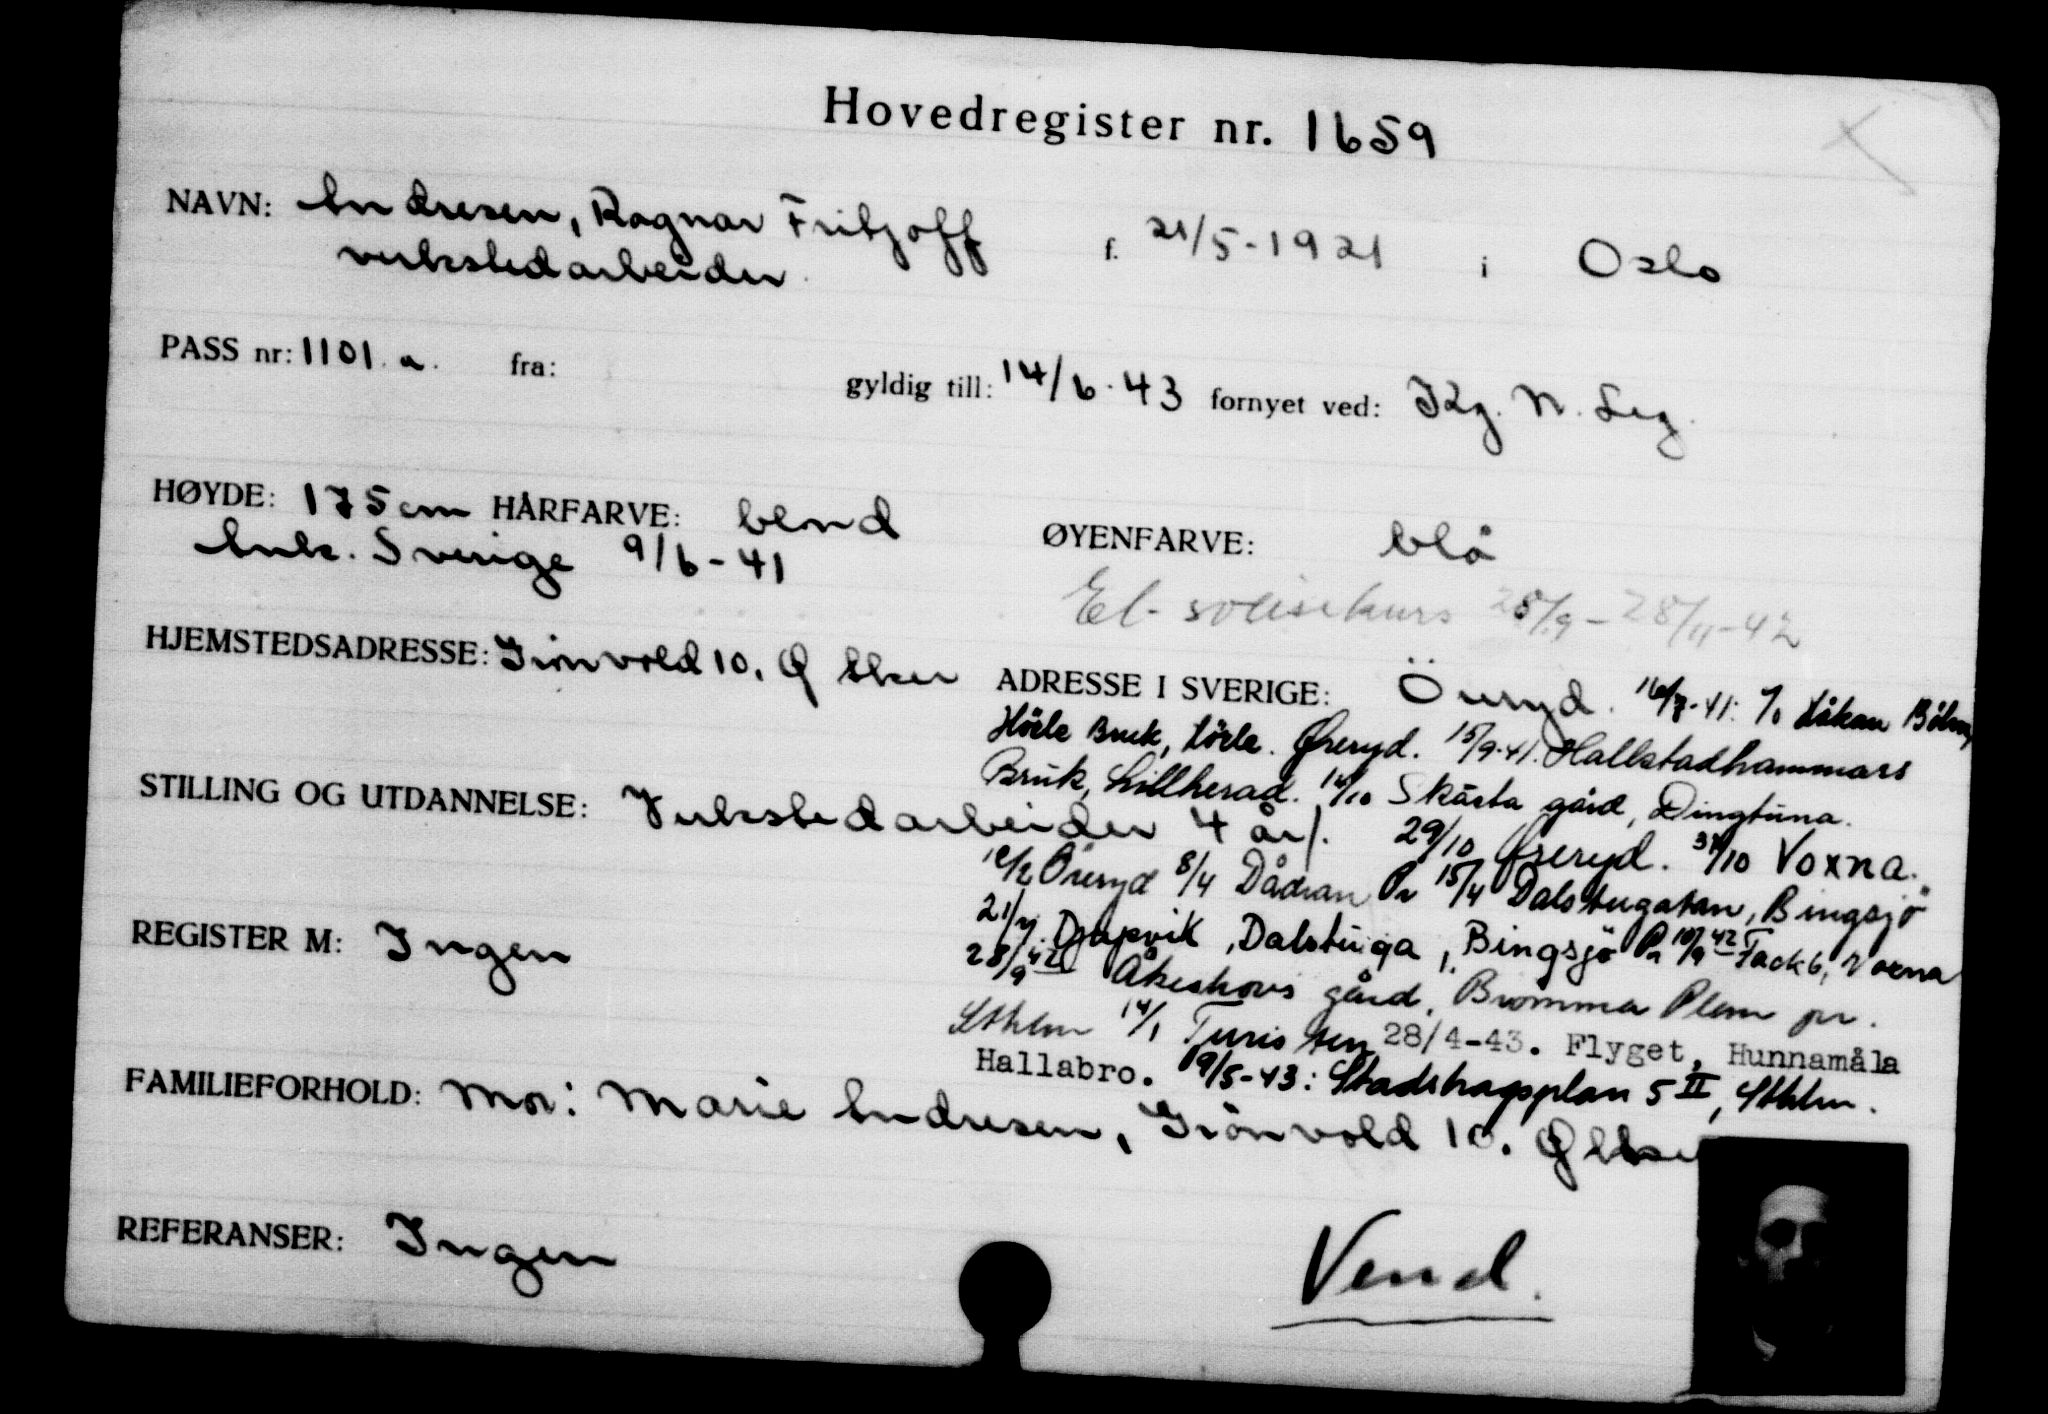 Hovedregister nr. 1659
NAVN: Andresen, Ragnar Fritzoff f. 21/5-1921 i Oslo
verkstedarbeider.
PASS nr: 1101.a. fra: gyldig till: 14/6-43 fornyet ved: Kg. N. Leg.
HØYDE: 175 cm HÅRFARVE: blond ØYENFARVE: blå
Ank. Sverige 9/6-41
El-sveisekurs 28/9-28/11-42
HJEMSTEDSADRESSE: Grønvold 10. Ø Aker ADRESSE I SVERIGE: Öreryd. 16/7-41: c/o Håkan Böhm,
Hörle Bruk, Hörle. Øreryd. 15/9-41. Hallstadhammars
Bruk, Lillherad. 14/10 Skärsta gård, Dingtuna.
STILLING OG UTDANNELSE: Verkstedarbeider 4 år/. 29/10 Øreryd. 31/10 Voxna.
Öreryd 8/4 Dådran Pr 15/4 Dalstugatan, Bingsjö
REGISTER M: Ingen
Djupvik, Dalstuga, Bingsjö Pr 10/9 42 Fack 6, Voxna
28/9 42 Åkeshovs gård, Bromma Plan pr.
Sthlm 14/1 Turisten 28/4-43. Flyget, Hunnamåla
Hallabro. 9/5-43: Stadshagsplan 5 II, Sthlm.
FAMILIEFORHOLD: Mor: Marie Andresen, Grönvold 10. Ø Aker
REFERANSER: Ingen
Vend.